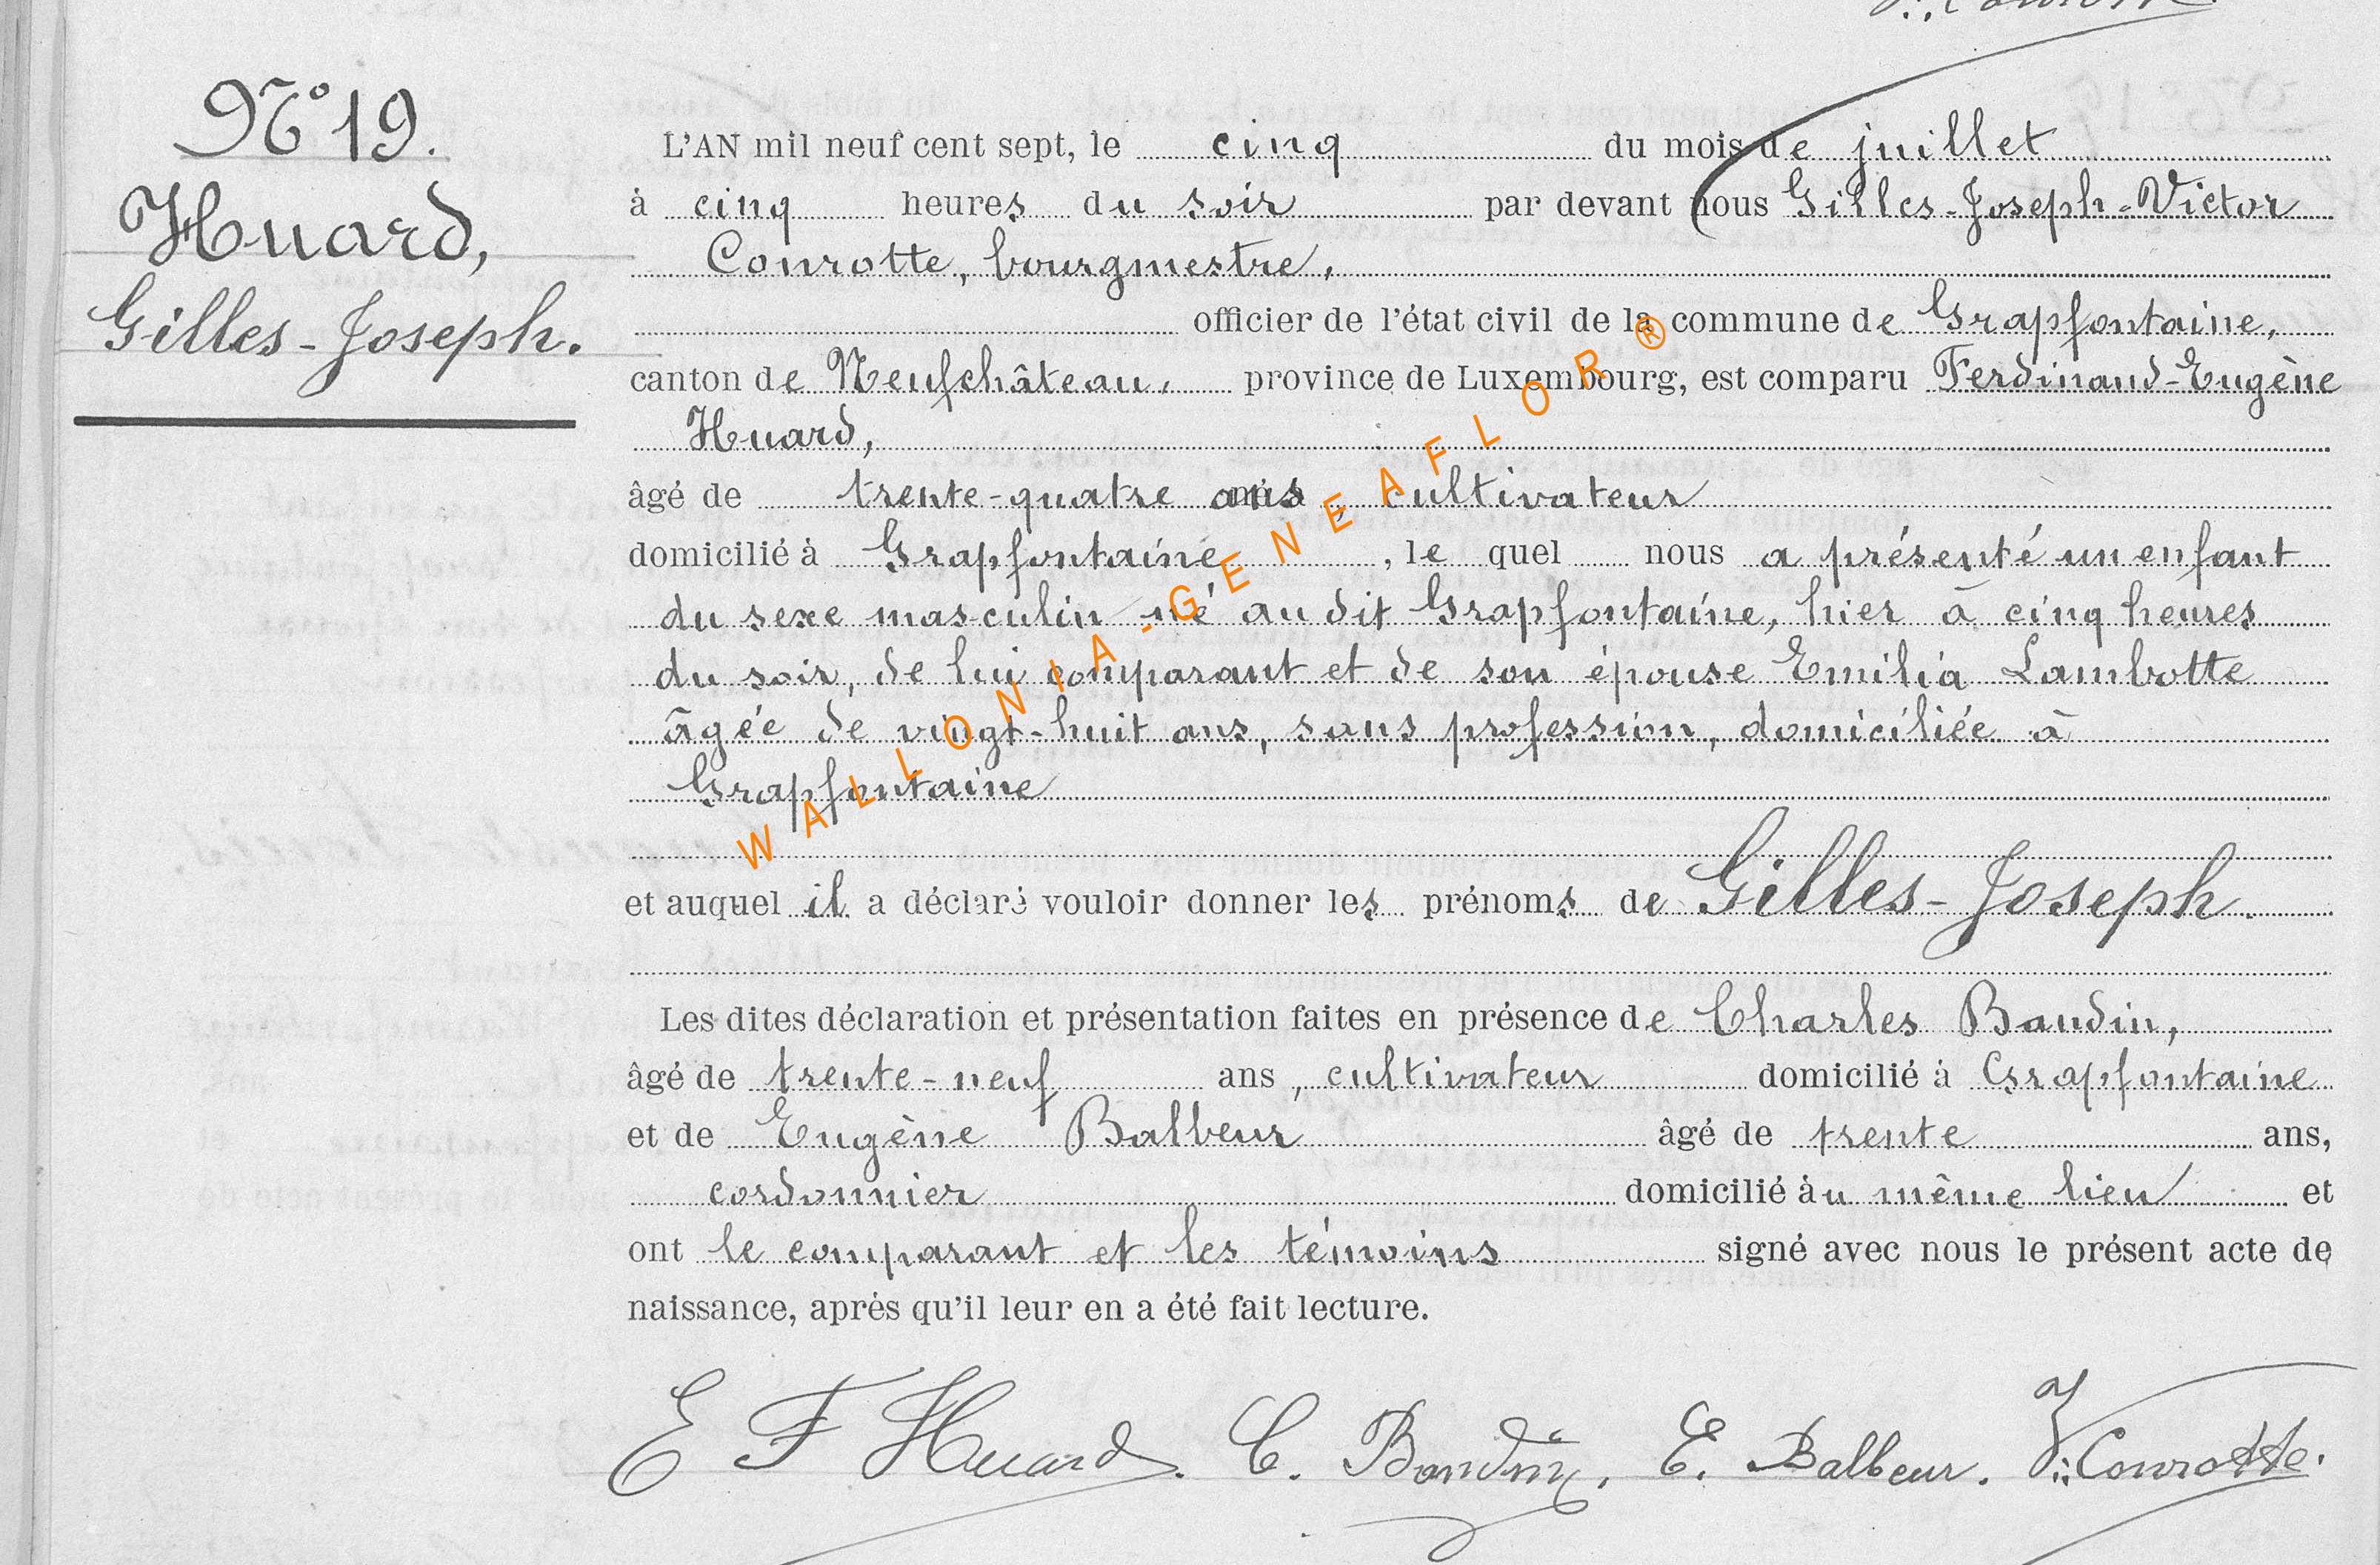 N° 19.
Huard,
Gilles-Joseph.
L'AN mil neuf cent sept, le cinq du mois de juillet
à cinq heures du soir par devant nous Gilles-Joseph-Victor
Conrotte, bourgmestre,
officier de l'état civil de la commune de Grapfontaine,
canton de Neufchâteau, province de Luxembourg, est comparu Ferdinand-Eugène
Huard,
âgé de trente-quatre ans, cultivateur
domicilié à Grapfontaine, le quel nous a présenté un enfant
du sexe masculin né au dit Grapfontaine, hier à cinq heures
du soir, de lui comparant et de son épouse Emilia Lambotte
âgée de vingt-huit ans, sans profession, domiciliée à
Grapfontaine
et auquel il a déclaré vouloir donner les prénoms de Gilles-Joseph.
Les dites déclaration et présentation faites en présence de Charles Baudin,
âgé de trente-neuf ans, cultivateur domicilié à Grapfontaine
et de Eugène Balbeur âgé de trente ans,
cordonnier domicilié àu même lieu et
ont le comparant et les témoins signé avec nous le présent acte de
naissance, après qu'il leur en a été fait lecture.
E F Huard. C. Baudin, E. Balbeur. V. Conrotte.
WALLONIA-GENEAFLOR ®